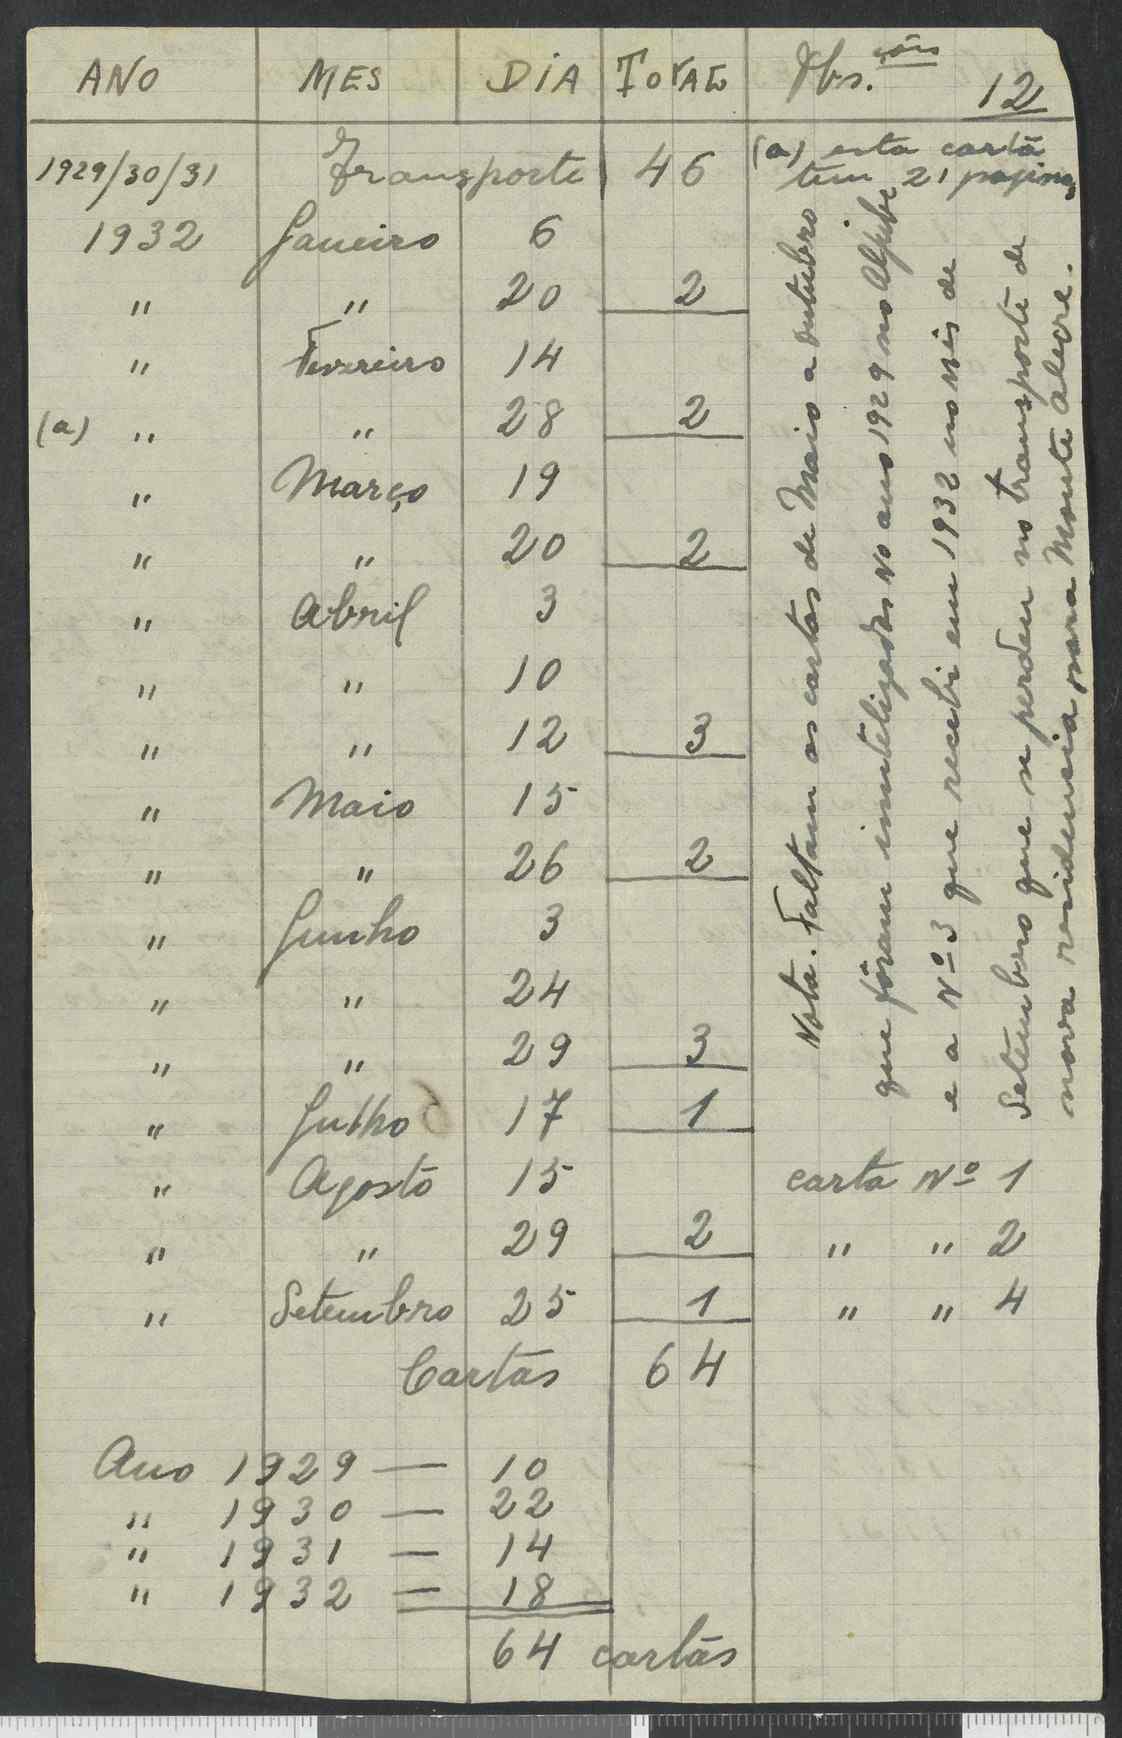 ANO MES DIA TOTAL Obs. ções 12
1929/30/31 Transporte 46 (a) esta carta
tem 21 paginas
1932 Janeiro 6
" " 20 2
" Fevereiro 14
(a) " " 28 2
" Março 19
" " 20 2
" Abril 3
" " 10
" " 12 3
" Maio 15
" " 26 2
" Junho 3
" " 24
" " 29 3
" Julho 17 1
" Agosto 15 carta Nº 1
" " 29 2 " " 2
" Setembro 25 1 " " 4
Cartas 64
Nota. Faltam as cartas de Maio a Outubro
que fôram inutelizadas no ano 1929 no Aljube
e a Nº 3 que recebi em 1932 no mês de
Setembro que se perdeu no transporte de
nova residencia para Monte Alegre.
Ano 1929 — 10
" 1930 — 22
" 1931 — 14
" 1932 — 18
64 cartas